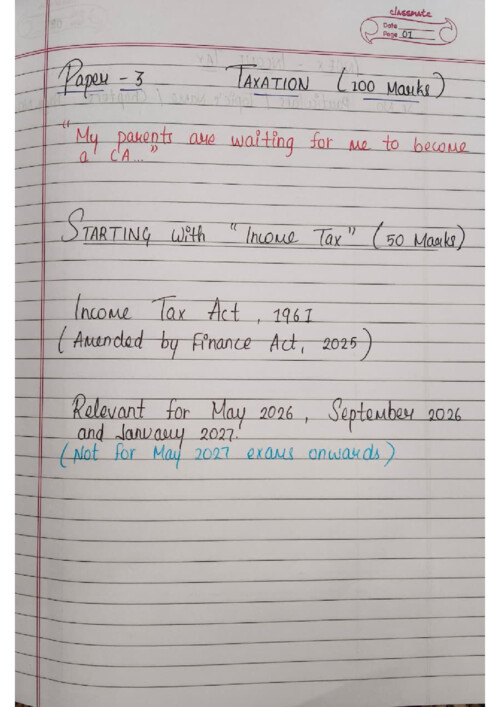 classmate
Date
Page 01
Paper - 3 TAXATION (100 Marks)
"My parents are waiting for me to become
a CA..."
STARTING with "Income Tax" (50 Marks)
Income Tax Act, 1961
(Amended by Finance Act, 2025)
Relevant for May 2026, September 2026
and January 2027.
(Not for May 2027 exams onwards)